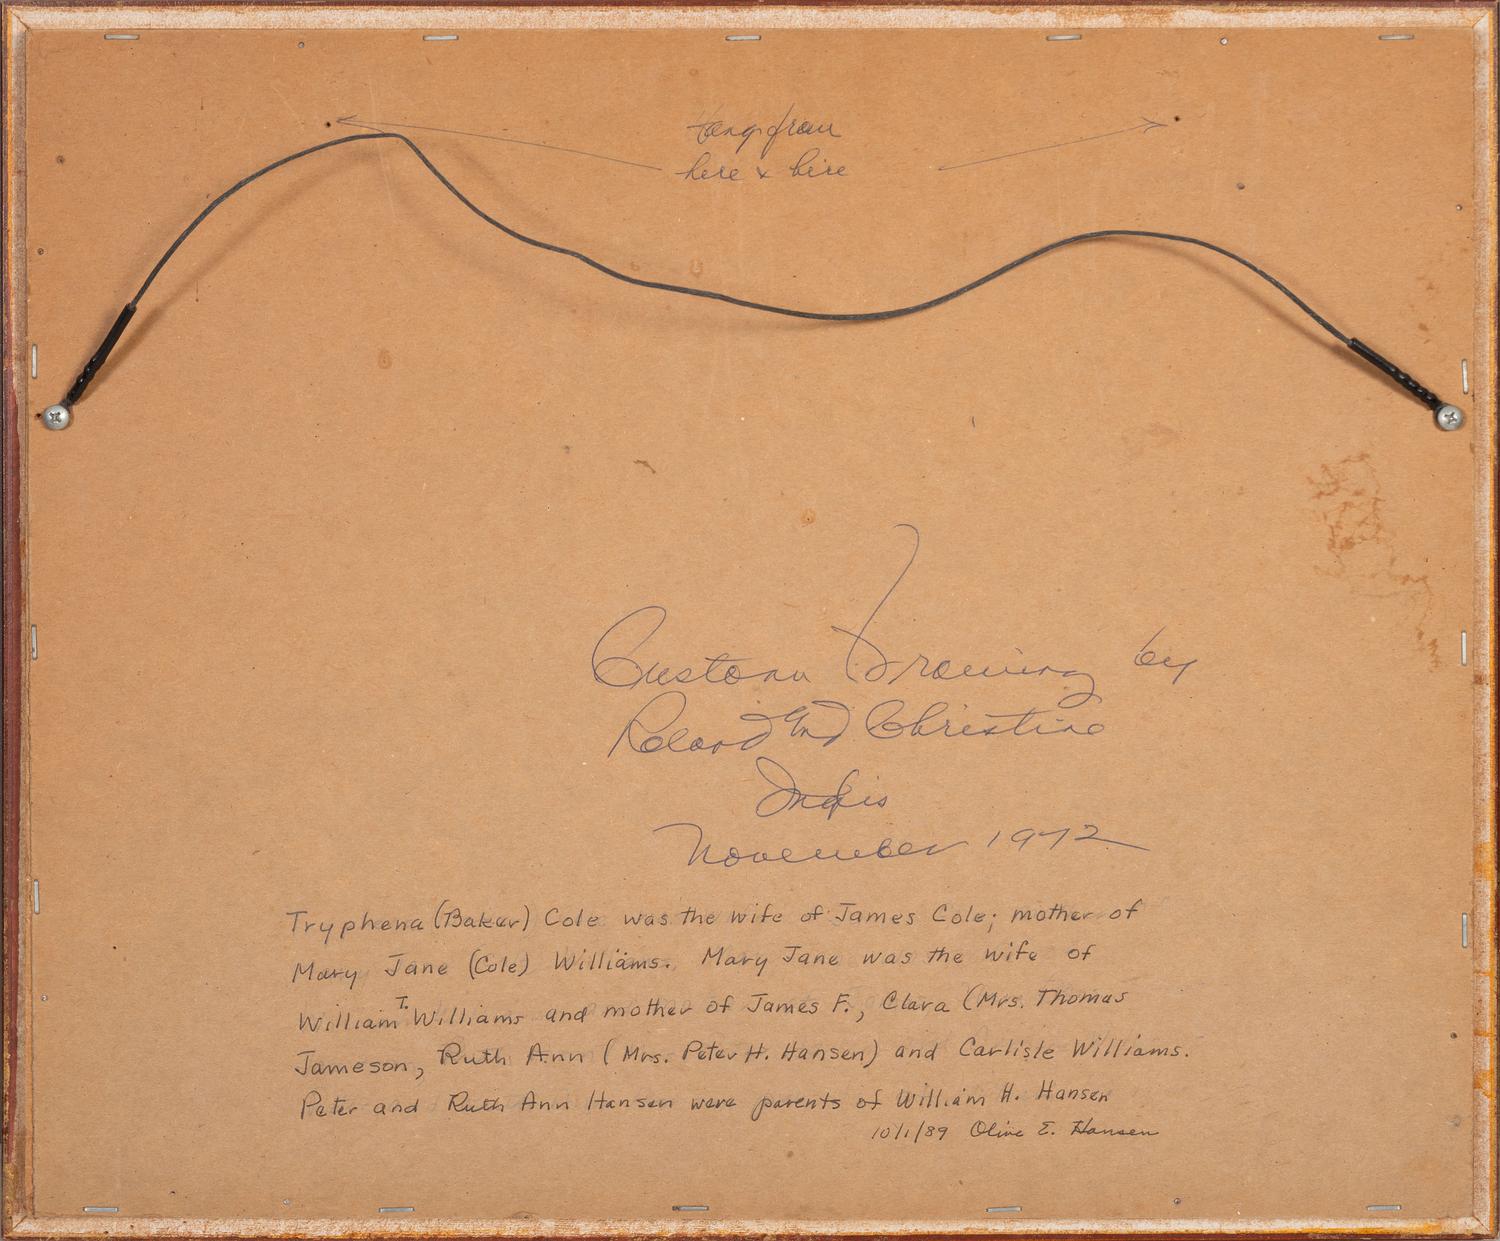 hang from
here & here
Custom Framing by
Roland and Christine
November 1972
Tryphena (Baker) Cole was the wife of James Cole; mother of
Mary Jane (Cole) Williams. Mary Jane was the wife of
William T. Williams and mother of James F., Clara (Mrs. Thomas
Jameson, Ruth Ann (Mrs. Peter H. Hansen) and Carlisle Williams.
Peter and Ruth Ann Hansen were parents of William H. Hansen
10/1/89 Olive E. Hansen